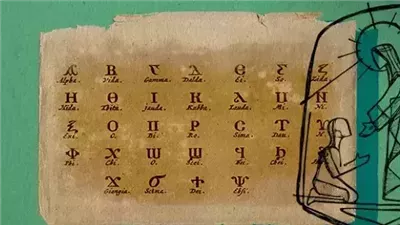 Ⲁ Ⲃ Ⲅ Ⲇ Ⲉ Ⲋ Ⲍ
Alpha. Vida. Gamma. Dalda. Ei. So. Zida
Ⲏ Ⲑ Ⲓ Ⲕ Ⲗ Ⲙ Ⲛ
Hida. Thita. Jauda. Kabba. Lauda. Mi. Ni.
Ⲝ Ⲟ Ⲡ Ⲣ Ⲥ Ⲧ
Exi. O. Bi. Ro. Sima. Dau.
Ⲫ Ⲭ Ⲱ Ϣ Ϥ Ϧ Ϩ
Phi. Chi. O. Scei. Fei. Chei.
Ϫ Ϭ Ϯ Ⲯ
Giangia. Scima. Dei. Ebsi.